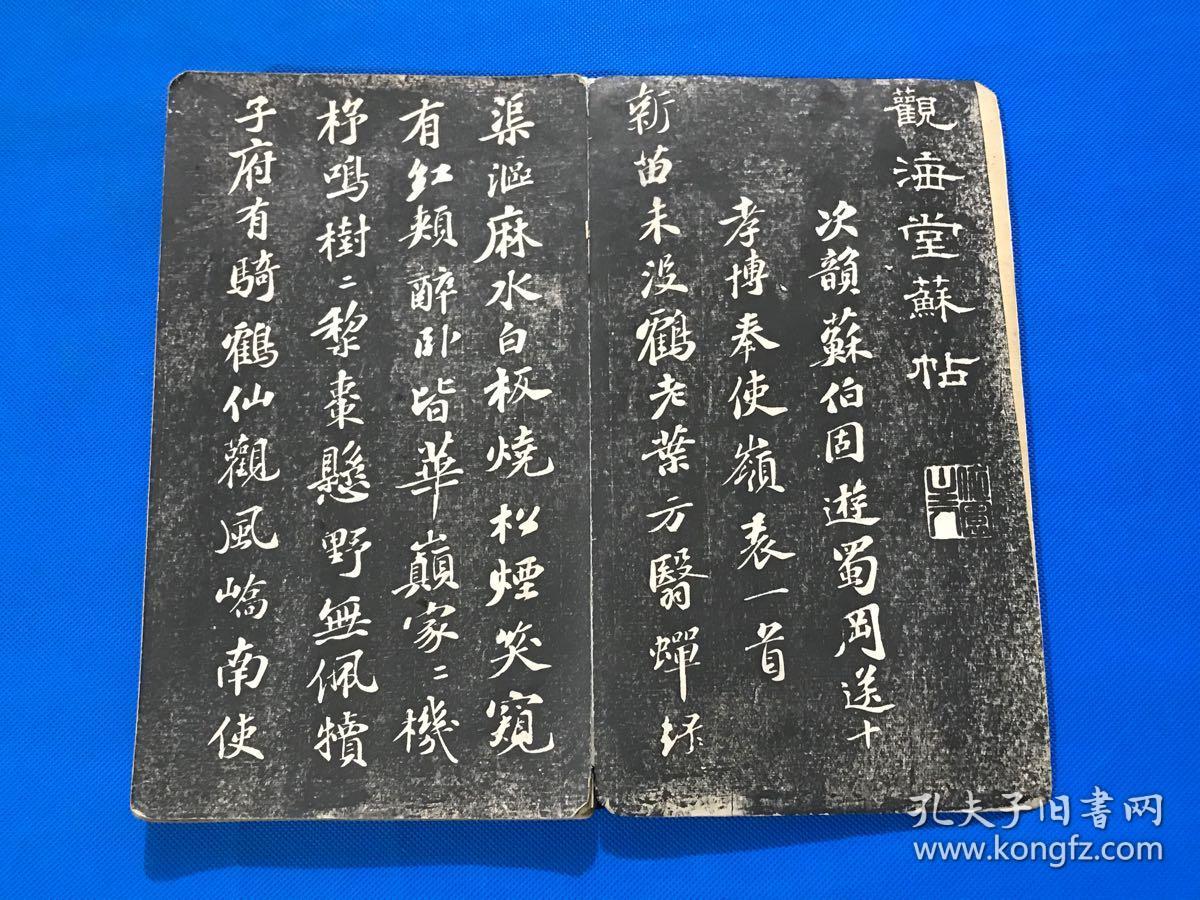 觀海堂蘇帖
次韻蘇伯固遊蜀岡送十
孝博奉使嶺表一首
新苗未沒鶴老葉方翳蟬緑
渠漚麻水白板燒松煙笑窺
有紅頰醉臥皆華巔家二機
杼鳴樹二黎棗懸野無佩犢
子府有騎鶴仙觀風嶠南使
孔夫子旧书网
www.kongfz.com